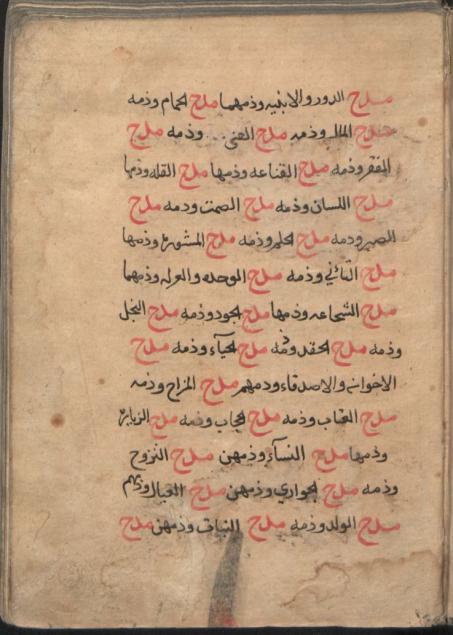 مدح الدور والابنيه وذمهما مدح الحمام وذمه
مدح المال وذمه مدح الغنى وذمه مدح
الفقر وذمه مدح القناعه وذمها مدح القله وذمها
مدح اللسان وذمه مدح الصمت وذمه مدح
الصبر وذمه مدح الحلم وذمه مدح المشورة وذمها
مدح التانى وذمه مدح الوحده والعزله وذمهما
مدح الشجاعه وذمها مدح الجود وذمه مدح البخل
وذمه مدح الحقد وذمه مدح الحيآء وذمه مدح
الاخوان والاصدقاء وذمهم مدح المزاح وذمه
مدح العتاب وذمه مدح الحجاب وذمه مدح الزيارة
وذمها مدح النسآء وذمهن مدح التزوج
وذمه مدح الجواري وذمهن مدح العيال وذمهم
مدح الولد وذمه مدح البنات وذمهن مدح